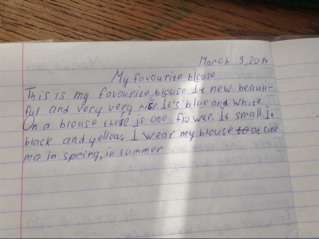 March 9, 20
My favourite blouse
This is my favourite blouse. It new beauti-
ful and very very nice. It's blak and white.
On a blouse there is one flower. It small. Is
black and yellow. I wear my blouse
in spring, in summer